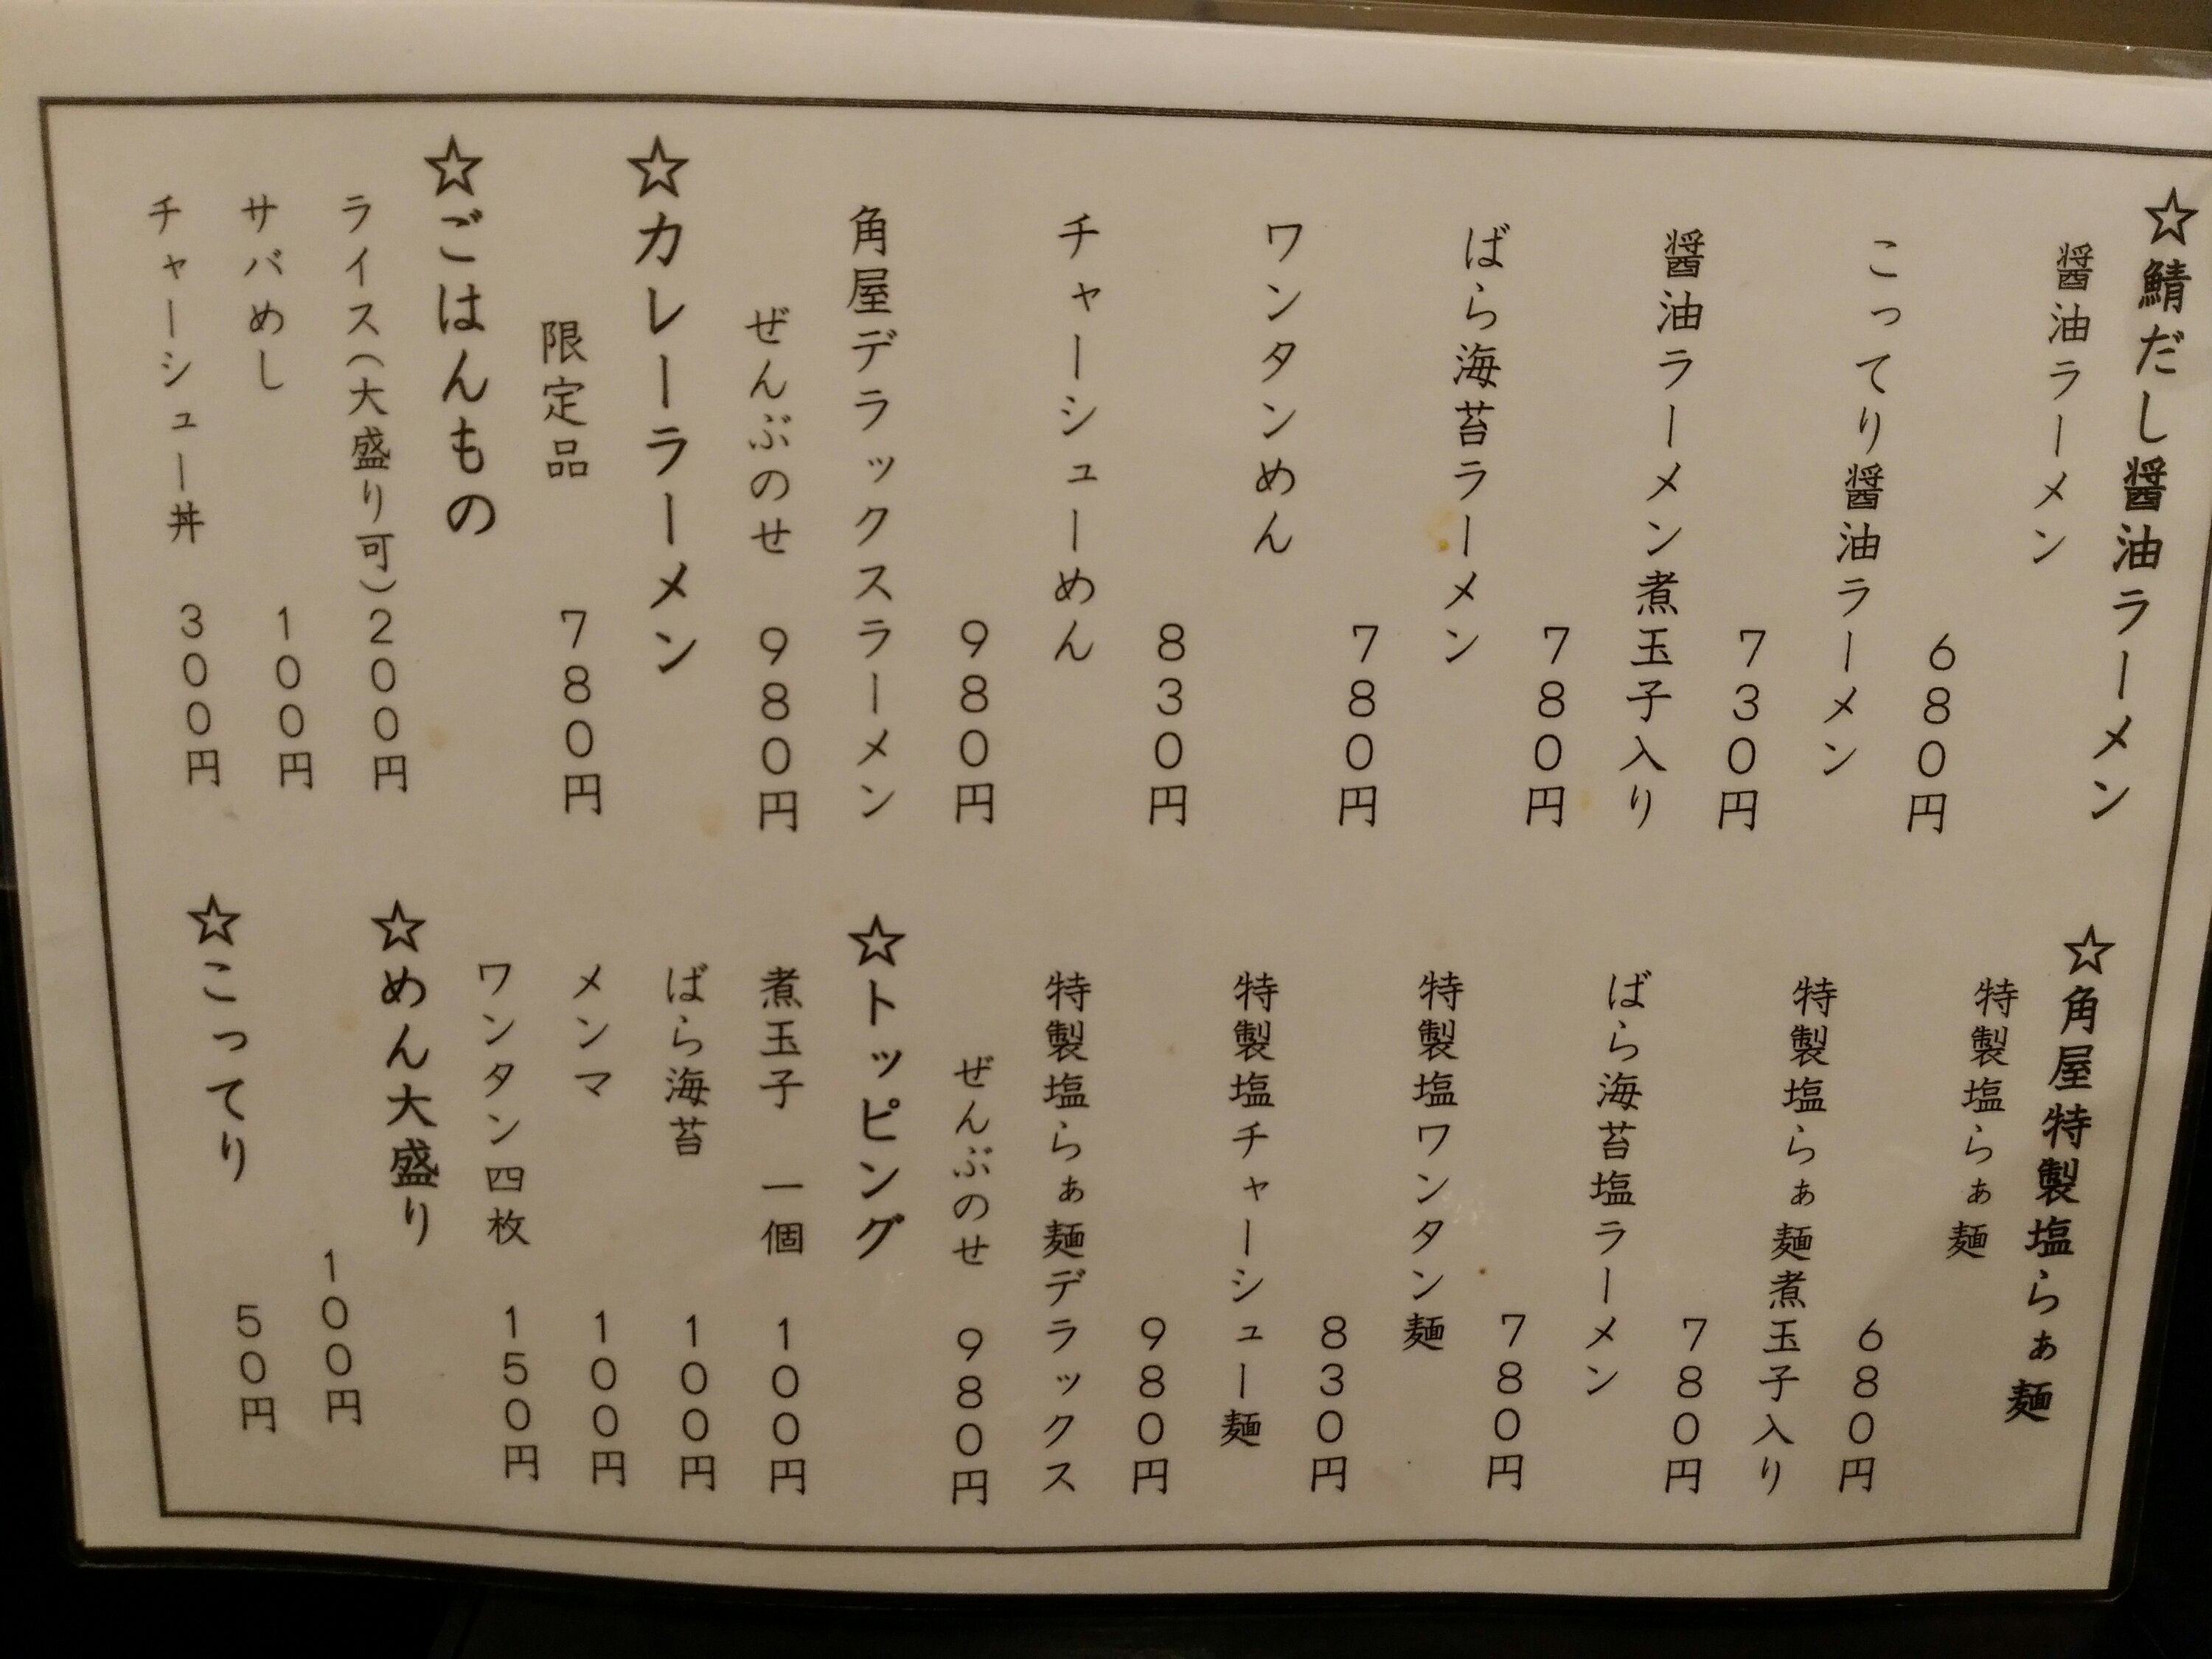 ☆鯖だし醤油ラーメン
醤油ラーメン
680円
こってり醤油ラーメン
730円
醤油ラーメン煮玉子入り
780円
ばら海苔ラーメン
780円
ワンタンめん
830円
チャーシューめん
980円
角屋デラックスラーメン
ぜんぶのせ 980円
☆カレーラーメン
限定品 780円
☆ごはんもの
ライス(大盛り可)200円
サバめし 100円
チャーシュー丼 300円
☆角屋特製塩らぁ麺
特製塩らぁ麺
680円
特製塩らぁ麺煮玉子入り
780円
ばら海苔塩ラーメン
780円
特製塩ワンタン麺
830円
特製塩チャーシュー麺
980円
特製塩らぁ麺デラックス
ぜんぶのせ 980円
☆トッピング
煮玉子 一個 100円
ばら海苔 100円
メンマ 100円
ワンタン四枚 150円
☆めん大盛り
100円
☆こってり 50円